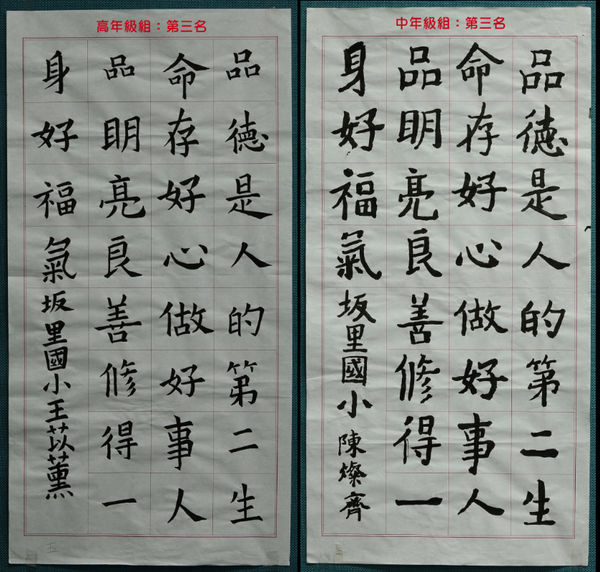 高年級組：第三名
品德是人的第二生
命存好心做好事人
品明亮良善修得一
身好福氣 坂里國小王苡薰
中年級組：第三名
品德是人的第二生
命存好心做好事人
品明亮良善修得一
身好福氣 坂里國小 陳燦齊